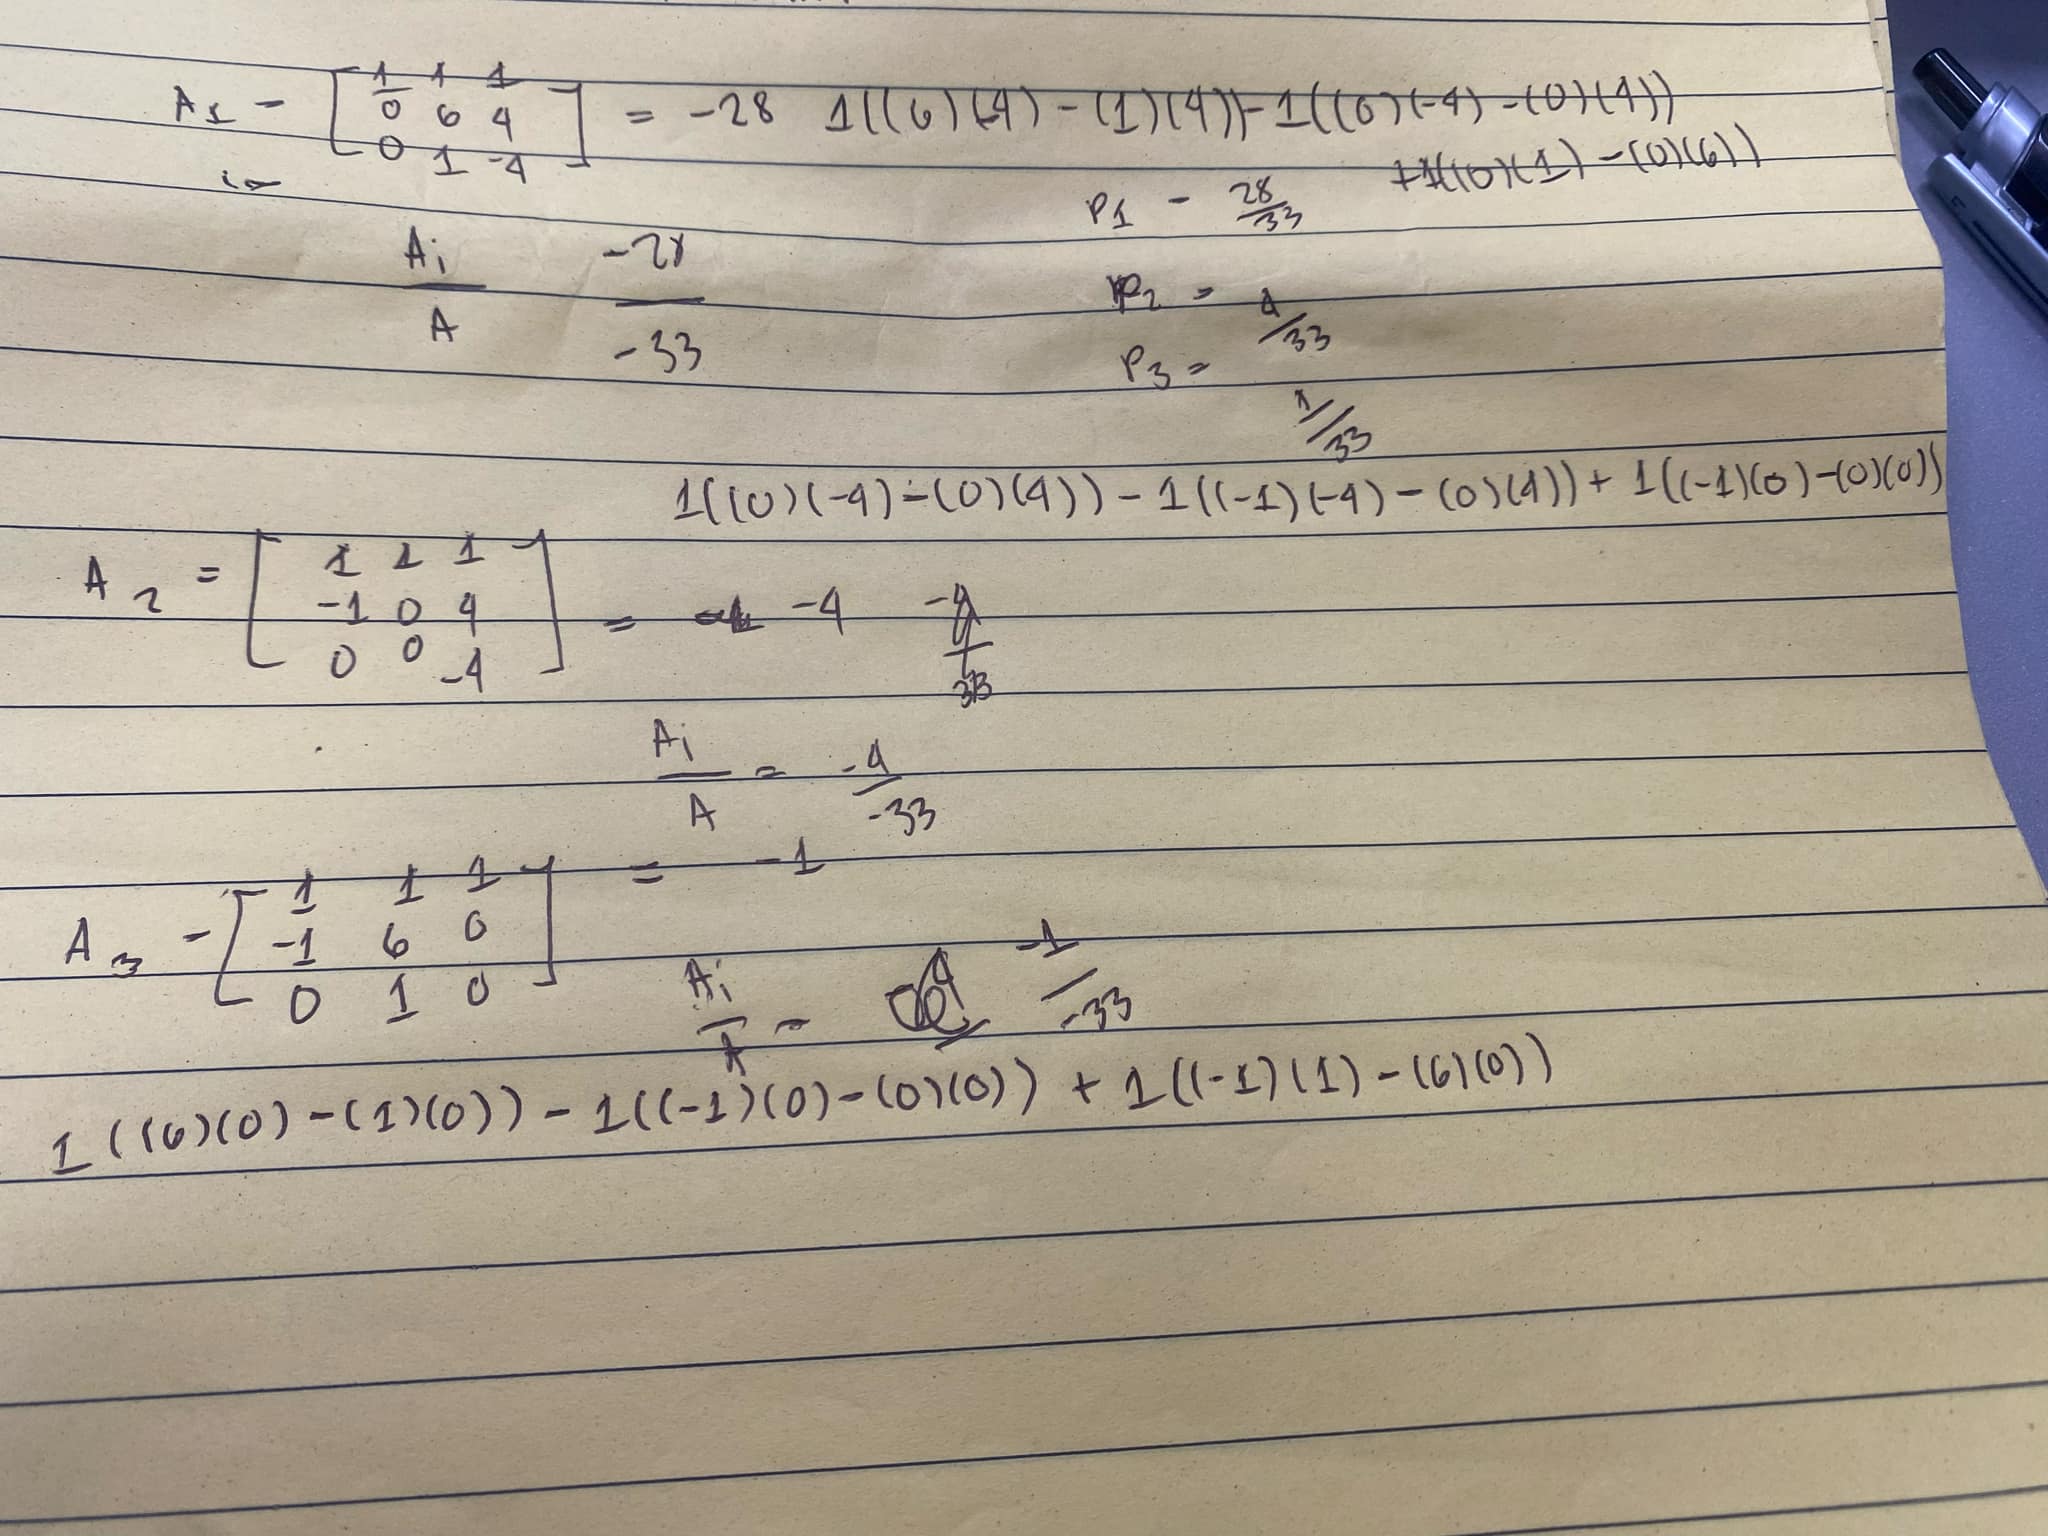 A1 - [ 1 1 1 = -28 1((6)(-4) - (1)(4)) - 1((0)(-4) - (0)(4))
0 6 4
0 1 -4 ]
+1((0)(1) - (0)(6))
P1 - 28/33
Ai/A -28/-33
P2 = 4/33
P3 = 1/33
1((0)(-4) - (0)(4)) - 1((-1)(-4) - (0)(4)) + 1((-1)(0) - (0)(0))
A2 = [ 1 1 1
-1 0 4 = -4
0 0 -4 ]
Ai/A = -4/-33
A3 - [ 1 1 1 = -1
-1 6 0
0 1 0 ]
Ai/A = -1/-33
1((6)(0) - (1)(0)) - 1((-1)(0) - (0)(0)) + 1((-1)(1) - (6)(0))